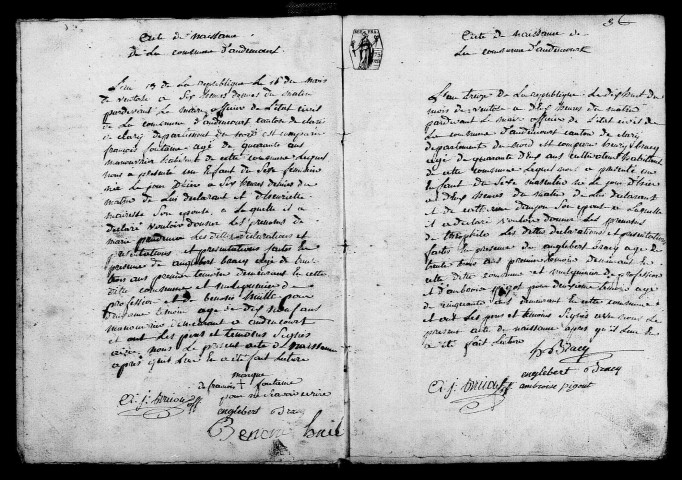 acte de naissance
de la commune d'audencourt
L'an 13 de la republique le 16 du mois
de ventose a six heures du matin
pardevant le maire officier de l'état civil
de la commune d'audencourt canton de clari
departement du nord est comparu
françois fontaine agé de quarante ans
manouvrier habitant de cette commune lequel
nous a presenté un enfant du sexe feminin
née le jour d'hier a six heures du
matin de lui declarant et d'henriette
son epouse a laquelle il a
declaré vouloir donner les prenoms de
marie les dittes declarations et
presentations faites en
presence de anglebert bracq agé de trente
trois ans premier temoin demeurant en cette
ditte commune et mulquinier de
profession et de benoit
temoin age de dix neuf ans
manouvrier demeurant a audencourt
et ont les pere et temoins signés
avec nous le present acte de naissance
apres qu'il leur a été fait lecture
marque
de françois fontaine
pour ne savoir ecrire
anglebert Bracq
Benoit
86
acte de naissance de
la commune d'audencourt
L'an treize de la republique le dix huit du
mois de ventose a dix heures du matin
pardevant le maire officier de l'état civil de
la commune d'audencourt canton de clari
departement du nord est comparu henry bracq
agé de quarante ans cultivateur habitant
de cette commune lequel nous a presenté un
enfant du sexe masculin né le jour d'hier
a heures du matin de lui declarant
et de son epouse a laquelle
il a declaré vouloir donner les prenoms
de theophile les dittes declarations et presentations
faites en presence de anglebert bracq age de
trente trois ans premier temoin demeurant en
cette ditte commune et mulquinier de profession
et d'ambroise pigout second temoin age
de cinquante ans demeurant en cette commune
et ont les pere et temoins signés avec nous le
present acte de naissance apres qu'il leur en
a été fait lecture
h Bracq
anglebert Bracq
ambroise pigout